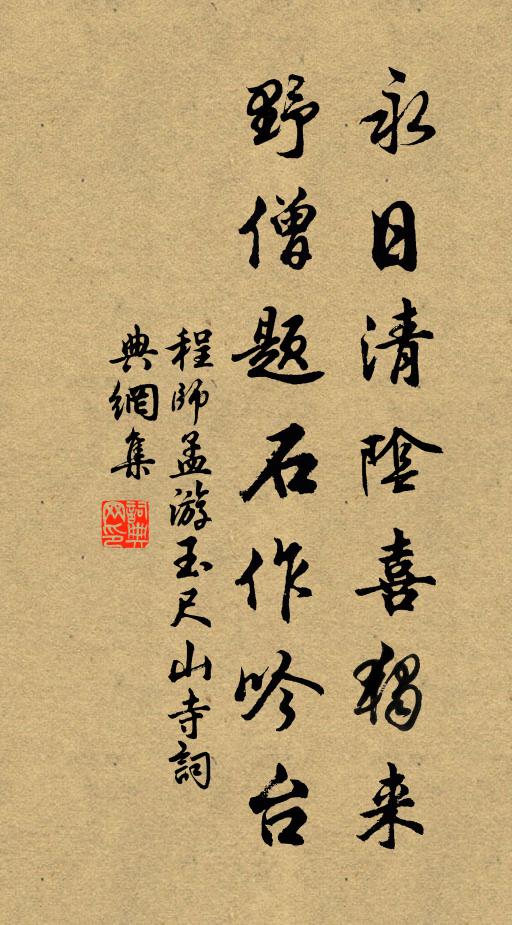 永日清陰喜獨来
野僧題石作吟台
程師孟游玉尺山寺詞
典網集
詞典网印